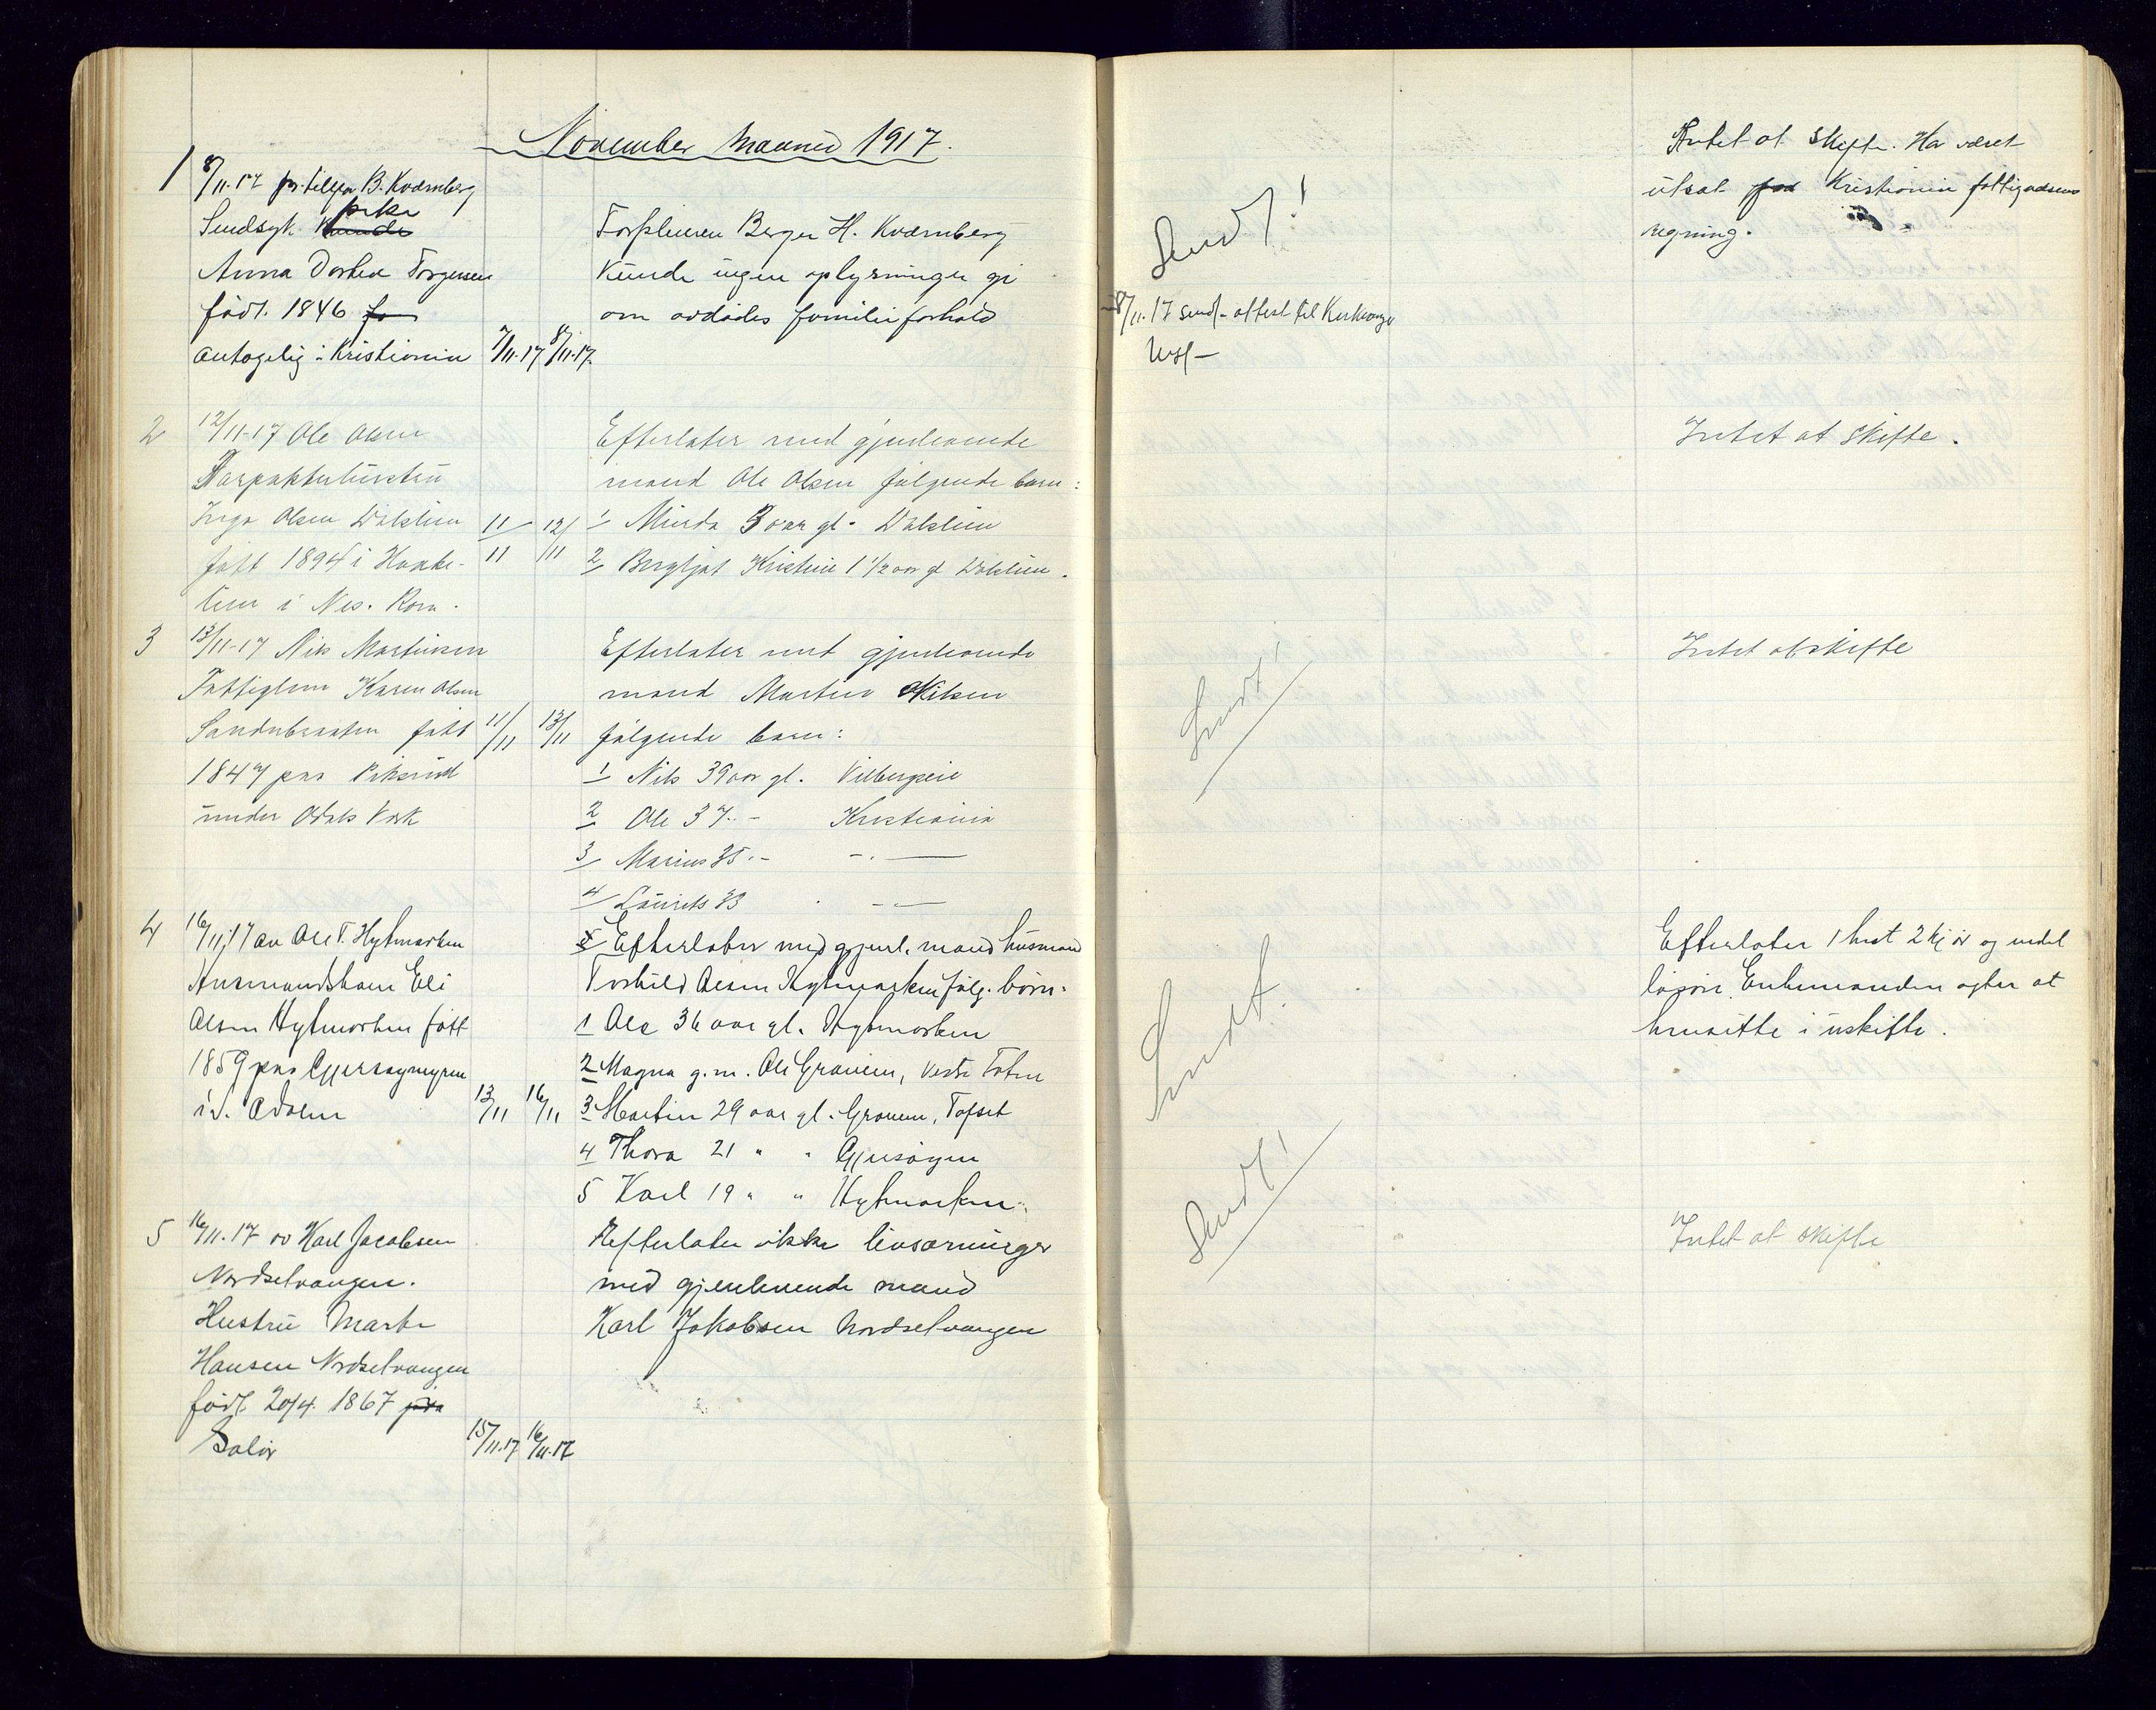 November Maaned 1917.
1 8/11-17 pr. telefon B. Kværnberg
Sindsyk Kvinde pike
Anna Dorthea Torgersen
født 1846
antagelig i Kristiania 7/11-17 8/11-17.
Forpleieren Berger H. Kværnberg
kunde ingen oplysninger gi
om avdødes familieforhold
Sendt!
8/11.17 sendt attest til
Intet at skifte. Har været
utsat for Kristiania fattigvæsens
regning.
2 12/11-17 Ole Olsen
Inga Olsen
født 1894 i
i Nes. Rom.
11/11 12/11
Efterlater med gjenlevende
mand Ole Olsen følgende barn:
1 Minda 3 aar gl.
2 Bergljot Kristine 1 1/2 aar gl
Intet at skifte.
3 13/11-17 Nils Martinsen
Fattiglem Karen Olsen
Sandnbraaten født
1847 paa
under Odals Værk
11/11 13/11
Efterlater med gjenlevende
mand Martin Nilsen
følgende barn:
1 Nils 39 aar gl.
2 Ole 37 - Kristiania
3 Marius 35 -
4 Laurits 33
Sendt!
Intet at skifte
4 16/11 17 av Ole T. Hytmarken
Husmandskone Eli
Olsen Hytmarken født
1859 paa
i S. Odalen 13/11 16/11
Efterlater med gjenl. mand husmand
Torkild Olsen Hytmarken følg. børn:
1 Ole 36 aar gl. Hytmarken
2 Magna g. m. Ole Graneim, Vestre Toten
3 Martin 29 aar gl.
4 Thora 21 " "
5 Karl 19 " " Hytmarken.
Sendt.
Efterlater 1 hest 2 kjør og endel
løsøre. Enkemanden agter at
hensitte i uskifte.
5 16/11-17 av Karl Jacobsen
Nordsetvangen.
Hustru Marte
Hansen Nordsetvangen
født 20/4 1867 paa
Solør 15/11-17 16/11-17
Efterlater ikke livsarvinger
med gjenlevende mand
Karl Jakobsen Nordsetvangen
Sendt!
Intet at skifte